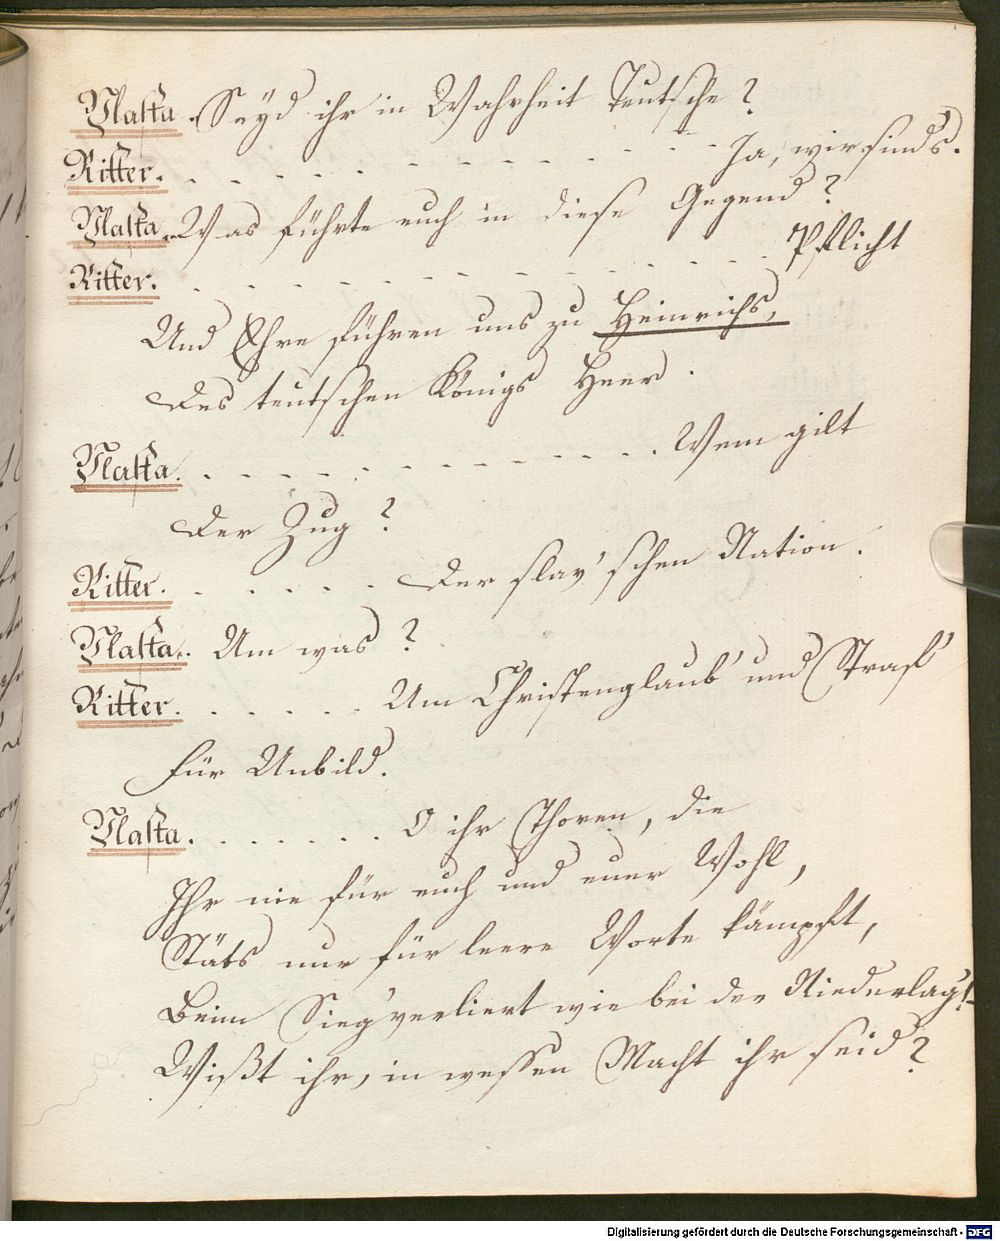 Vlasta. Seÿd ihr in Wahrheit Teutsche?
Ritter. . - - - - - - - - - - - Ja, wir sind's.
Vlasta. Was führte euch in diese Gegend?
Ritter. . - - - - - - - - - - - Pflicht
Und Ehre führen uns zu Heinrichs,
Des teutschen Königs Heer.
Vlasta. . - - - - - - - - - - Wem gilt
Der Zug?
Ritter. . - - - - - Der slav'schen Nation.
Vlasta. Um was?
Ritter. . - - - - - Um Christenglaub' und Straf'
Für Unbild.
Vlasta. . - - - - - O ihr Thoren, die
Ihr nie für euch und euer Wohl,
Stäts nur für leere Worte kämpft,
Beim Sieg verliert wie bei der Niederlag'! –
Wißt ihr, in wessen Macht ihr seid?
Digitalisierung gefördert durch die Deutsche Forschungsgemeinschaft - DFG